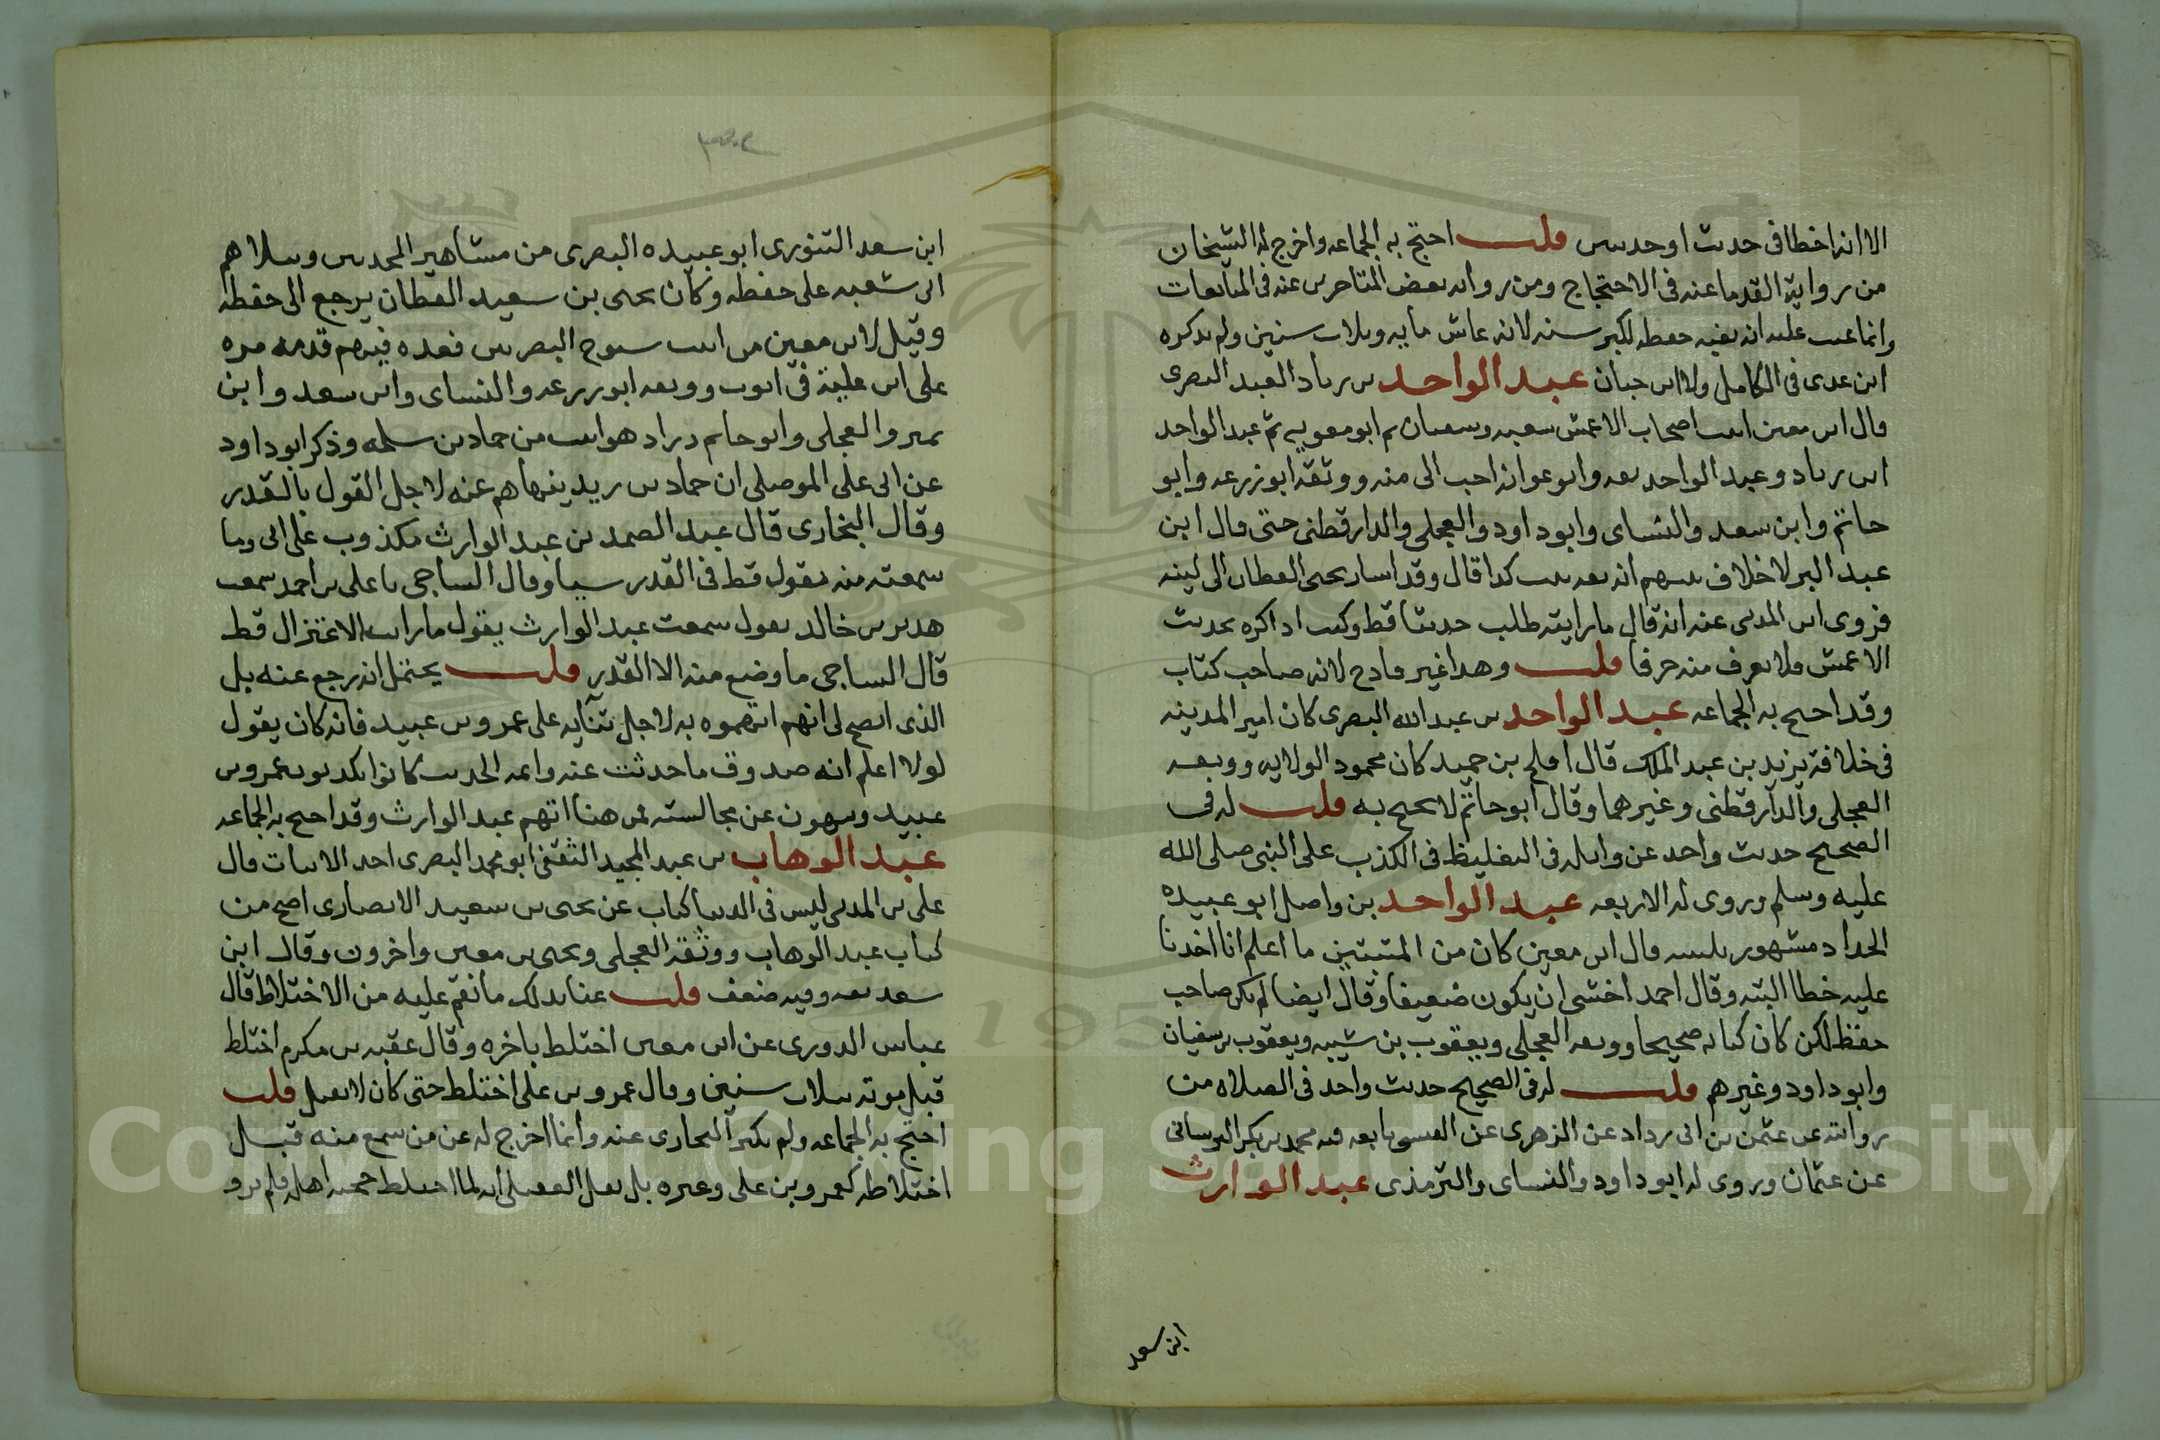 الا انه اخطا في حديث او حديثين قلت احتج به الجماعه واخرج له الشيخان
من رواية القدما عنه في الاحتجاج ومن روايه بعض المتاخرين عنه في المتابعات
وانما عيب عليه انه تغير حفظه لكبر سنه لانه عاش مايه وثلاث سنين ولم يذكره
ابن عدى في الكامل ولا ابن حبان عبد الواحد بن زياد العبد البصرى
قال ابن معين اثبت اصحاب الاعمش شعبه وسفيان ثم ابو معويه ثم عبد الواحد
ابن زياد وعبد الواحد ثقه وابو عوانه احب الى منه ووثقه ابو زرعه وابو
حاتم وابن سعد والنساى وابو داود والعجلى والدارقطنى حتى قال ابن
عبد البر لا خلاف بينهم انه ثقه ثبت كذا قال وقد اشار يحيى القطان الى لينه
فروى ابن المدينى عنه انه قال ما رايته طلب حديثا قط وكنت اذاكره بحديث
الاعمش فلا يعرف منه حرفا قلت وهذا غير قادح لانه صاحب كتاب
وقد احتج به الجماعه عبد الواحد بن عبد الله البصرى كان امير المدينه
في خلافة يزيد بن عبد الملك قال افلح بن حميد كان محمود الولايه ووثقه
العجلى والدارقطنى وغيرهما وقال ابو حاتم لا يحتج به قلت له في
الصحيح حديث واحد عن واثله في التغليظ في الكذب على النبى صلى الله
عليه وسلم وروى له الاربعه عبد الواحد بن واصل ابو عبيده
الحداد مشهور بكنيته قال ابن معين كان من المتثبتين ما اعلم انا اخذنا
عليه خطا البته وقال احمد اخشى ان يكون ضعيفا وقال ايضا لم يكن صاحب
حفظ لكن كان كتابه صحيحا ووثقه العجلى ويعقوب بن شيبه ويعقوب بن سفيان
وابو داود وغيرهم قلت له في الصحيح حديث واحد في الصلاه من
روايته عن عثمن بن ابى رواد عن الزهرى عن انس تابعه فيه محمد بن بكر البرسانى
عن عثمان وروى له ابو داود والنساى والترمذى عبد الوارث
ابن سعد
ابن سعد التنورى ابو عبيده البصرى من مشاهير المحدثين ونبلاهم
اثنى شعبه على حفظه وكان يحيى بن سعيد القطان يرجع الى حفظه
وقيل لابن معين من اثبت شيوخ البصريين فعده فيهم قدمه مره
على ابن علية في ايوب ووثقه ابو زرعه والنساى وابن سعد وابن
نمير والعجلى وابو حاتم وزاد هو اثبت من حماد بن سلمه وذكر ابو داود
عن ابى على الموصلى ان حماد بن زيد ينهاهم عنه لاجل القول بالقدر
وقال البخارى قال عبد الصمد بن عبد الوارث مكذوب على ابى وما
سمعته منه يقول قط في القدر شيا وقال الساجى نا على بن احمد سمعت
هدبه بن خالد يقول سمعت عبد الوارث يقول ما رايت الاعتزال قط
قال الساجى ما وضع منه الا القدر قلت يحتمل انه رجع عنه بل
الذى اتضح لى انهم اتهموه به لاجل ثنايه على عمرو بن عبيد فانه كان يقول
لولا اعلم انه صدوق ما حدثت عنه وايمه الحديث كانوا يكذبون عمرو بن
عبيد وينهون عن مجالسته فمن هنا اتهم عبد الوارث وقد احتج به الجماعه
عبد الوهاب بن عبد المجيد الثقفى ابو محمد البصرى احد الاثبات قال
على بن المدينى ليس في الدنيا كتاب عن يحيى بن سعيد الانصارى اصح من
كتاب عبد الوهاب ووثقه العجلى ويحيى بن معين واخرون وقال ابن
سعد ثقه وفيه ضعف قلت عنا بذلك ما نقم عليه من الاختلاط قال
عباس الدورى عن ابن معين اختلط باخره وقال عقبه بن مكرم اختلط
قبل موته بثلاث سنين وقال عمرو بن على اختلط حتى كان لا يعقل قلت
احتج به الجماعه ولم يكثر البخارى عنه وانما اخرج له عن من سمع منه قبل
اختلاطه كعمرو بن على وغيره بل نقل العقيلى انه لما اختلط حجبه اهله فلم يرو
Copyright © King Saud University
1957